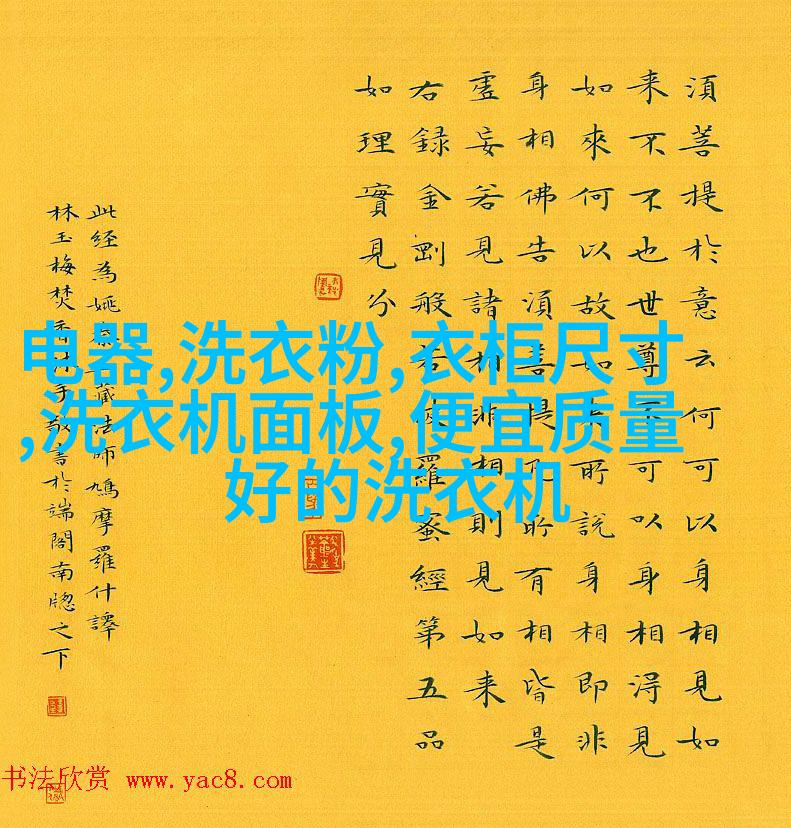 须菩提於意云何可以身相見如
来不不也世尊不可以身相得見
如來何以故如来所說身相即非
身相佛告須菩提凡所有相皆是
虛妄若見諸相非相則見如来
右録金剛般若波羅蜜經第五品
如理實見分
此経為姚秦三藏法師鳩摩羅什譯
林玉梅焚香沐手敬書於端閣南牕之下
电器,洗衣粉,衣柜尺寸
,洗衣机面板,便宜质量
好的洗衣机
书法欣赏 www.yac8.com